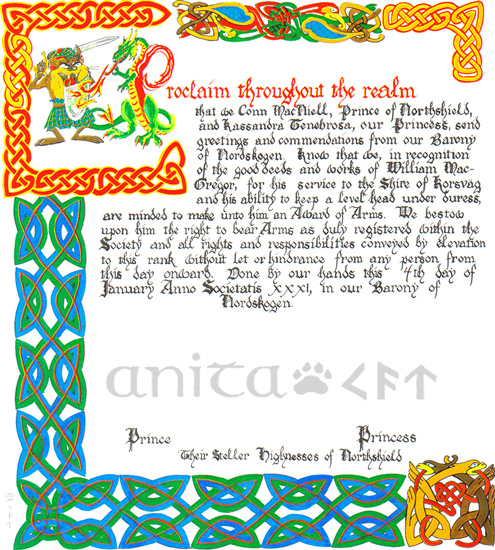 Proclaim throughout the realm
that we Conn MacNiell, Prince of Northshield,
and Kassandra Tenebrosa, our Princess, send
greetings and commendations from our Barony
of Nordskogen. Know that we, in recognition
of the good deeds and works of William Mac-
Gregor, for his service to the Shire of Korsvag
and his ability to keep a level head under duress,
are minded to make unto him an Award of Arms. We bestow
upon him the right to bear Arms as duly registered within the
Society and all rights and responsibilities conveyed by elevation
to this rank without let or hindrance from any person from
this day onward. Done by our hands this 4th day of
January Anno Societatis xxxi, in our Barony of
Nordskogen.
anita ᚲᚨᛏ
Prince Princess
Their Steller Highnesses of Northshield